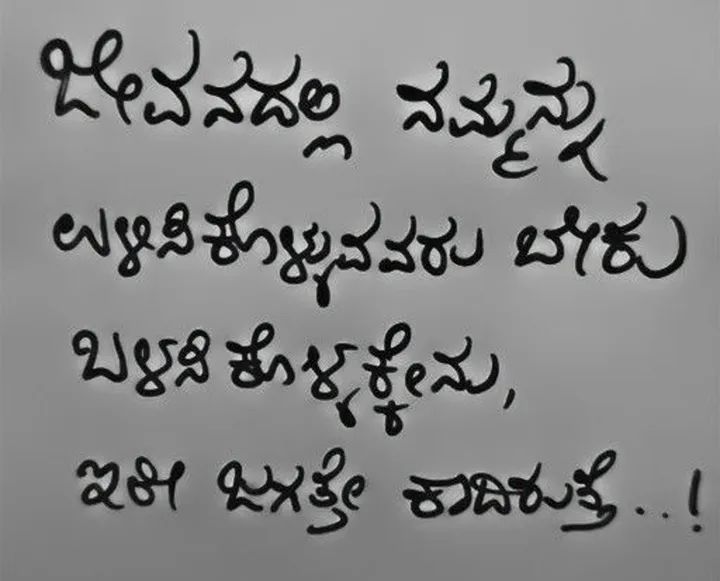 ಜೀವನದಲ್ಲಿ ನಮ್ಮನ್ನು
ಉಳಿಸಿಕೊಳ್ಳುವವರು ಬೇಕು
ಬಳಸಿಕೊಳ್ಳಕ್ಕೇನು,
ಇಡೀ ಜಗತ್ತೇ ಕಾದಿರುತ್ತೆ...!